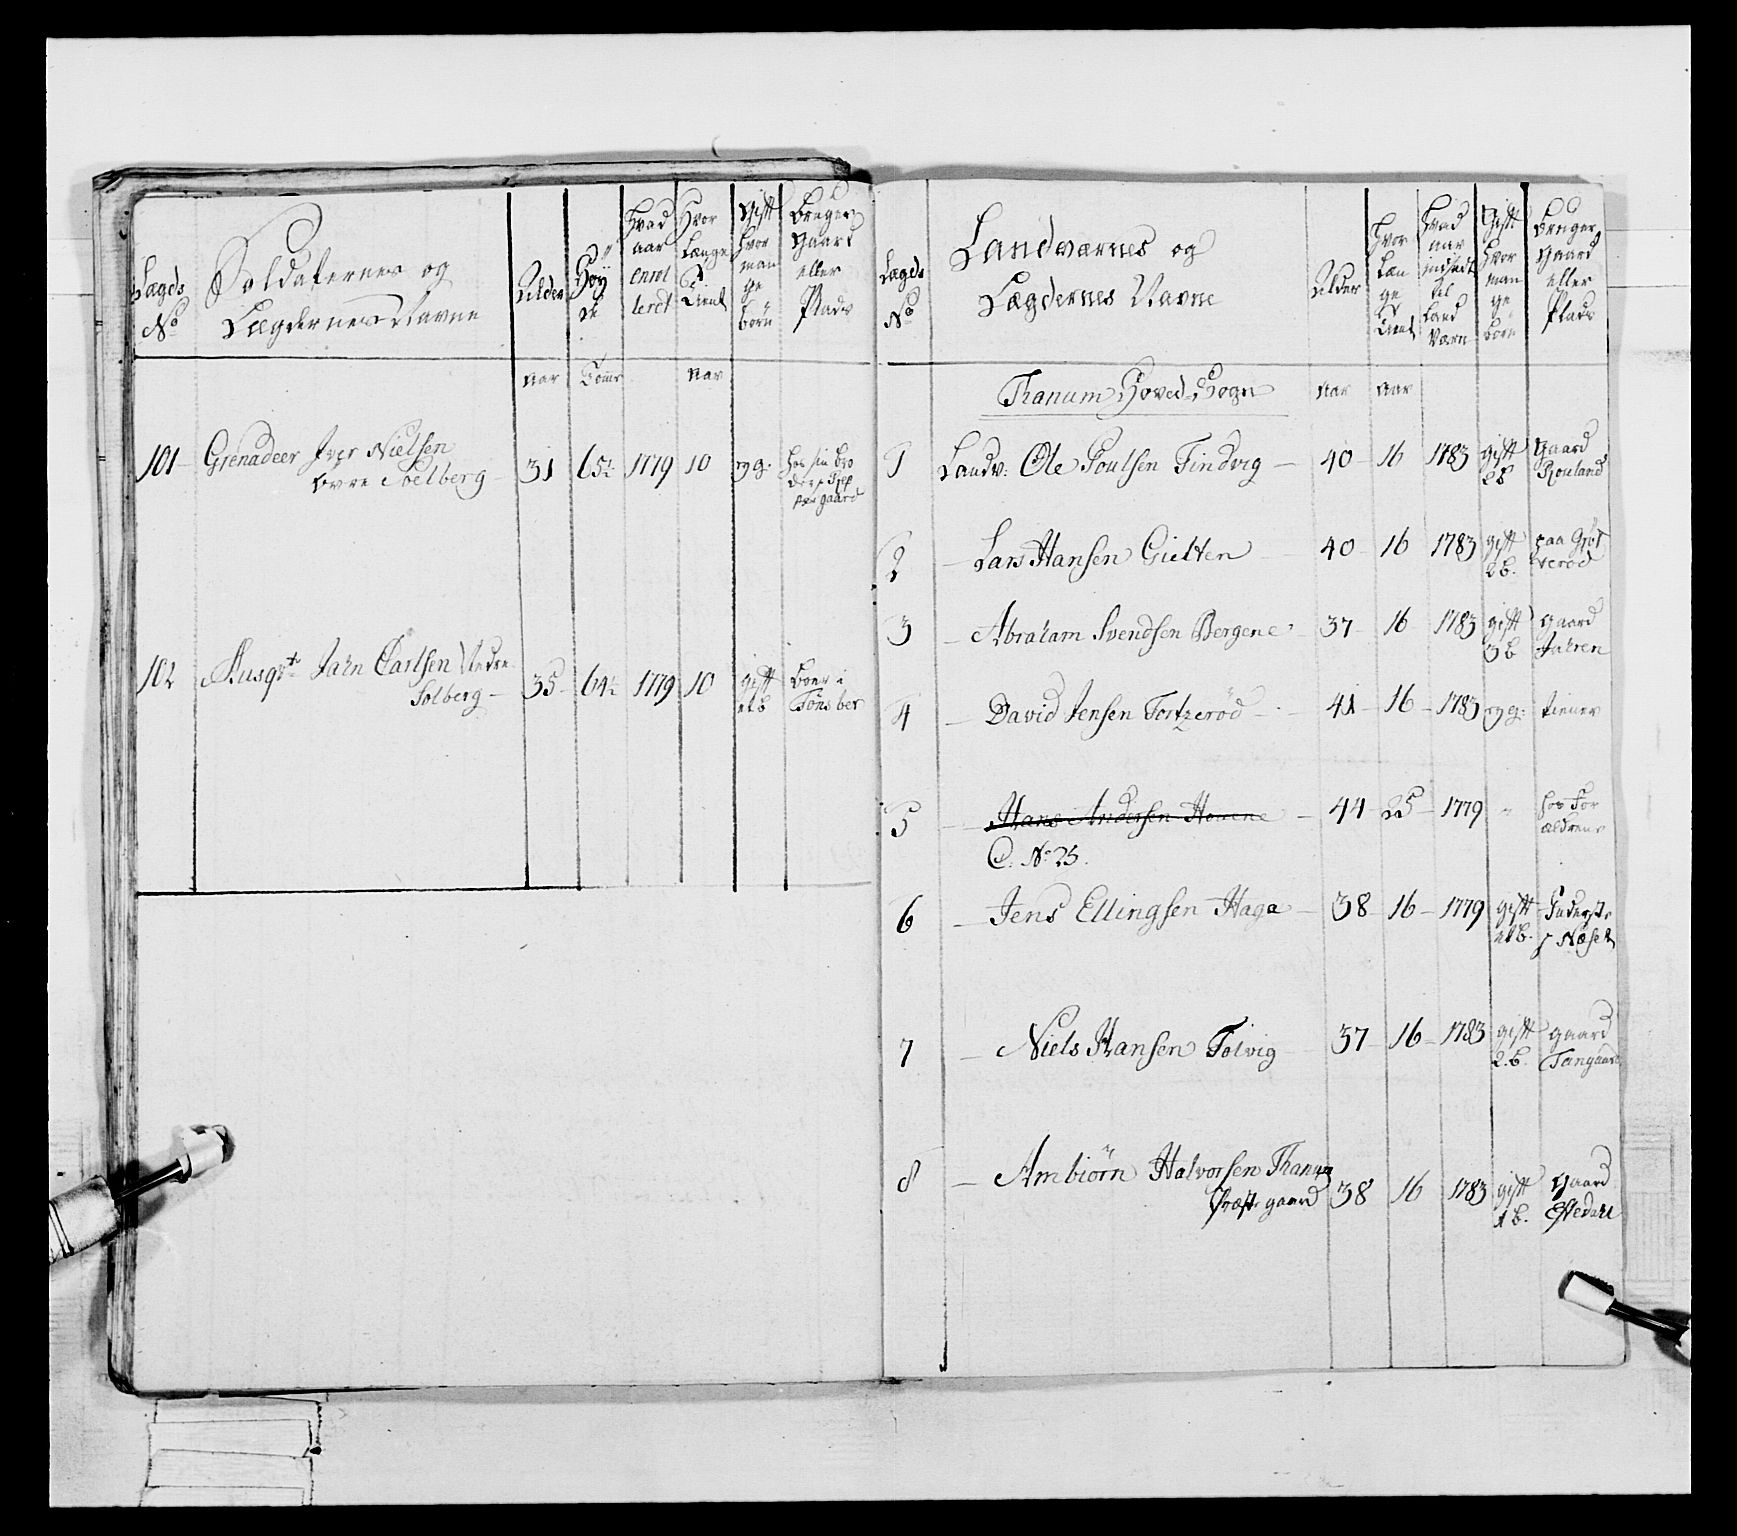 Lægds No
Soldaternes og Lægdernes Navne
Alder
Høy de
Hvad aar enrol leret
Hvor Længe tient
Gift hvor man ge børn
Bruger Gaard eller Plads
Aar Tomr Aar
101 Grenadeer Iver Nielsen
øvre Solberg 31 65½ 1779 10 ug: hos sin bro
der gaard
102 Musqt Jahn Carlsen Nedre
Solberg 35 64½ 1779 10 gift boer i
1 b Tønsber
Lægds No
Landværnes og Lægdernes Navne
Alder
Hvor Læn ge tient
Hvad aar indsadt til Land Værn
Gift hvor man ge børn
Bruger Gaard eller Plads
Thanum Hoved-Sogn Aar Aar
1 Landv: Ole Poulsen Findvig 40 16 1783 gift Gaard
Rouland
2 Lars Hansen Gielten 40 16 1783 gift paa
2 b.
3 Abraham Svendsen Bergene 37 16 1783 gift Gaard
3 b Jahren
4 David Jensen Fortzerød 41 16 1783 ug: tiener
5 Hans Andersen Houene 44 25 1779 hos For
C. No 25. ældrene
6 Jens Ellingsen Haga 38 16 1779 gift Inderst
1 b. i Næset
7 Niels Hansen Tolvig 37 16 1783 gift gaard
2. b. Tangaard
8 Ambiørn Halvorsen Thanum
Præste gaard 38 16 1783 gift Gaard
1 b.